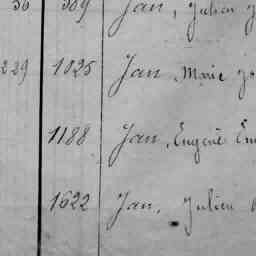 56 569 Jan, Julien
229 1025 Jan, Marie
1188 Jan, Eugène
1622 Jan, Julien